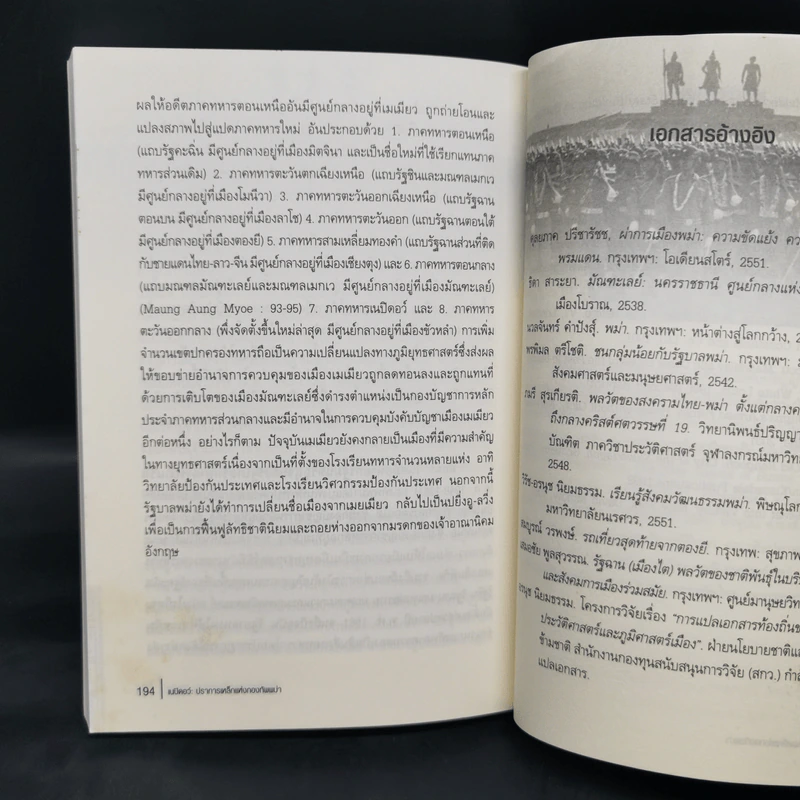 ผลให้อดีตภาคทหารตอนเหนืออันมีศูนย์กลางอยู่ที่เมเมียว ถูกถ่ายโอนและ
แปลงสภาพไปสู่แปดภาคทหารใหม่ อันประกอบด้วย 1. ภาคทหารตอนเหนือ
(แถบรัฐคะฉิ่น มีศูนย์กลางอยู่ที่เมืองมิตจินา และเป็นชื่อใหม่ที่ใช้เรียกแทนภาค
ทหารส่วนเดิม) 2. ภาคทหารตะวันตกเฉียงเหนือ (แถบรัฐชินและมณฑลเมกเว
มีศูนย์กลางอยู่ที่เมืองโมนีวา) 3. ภาคทหารตะวันออกเฉียงเหนือ (แถบรัฐฉาน
ตอนบน มีศูนย์กลางอยู่ที่เมืองลาโช) 4. ภาคทหารตะวันออก (แถบรัฐฉานตอนใต้
มีศูนย์กลางอยู่ที่เมืองตองยี) 5. ภาคทหารสามเหลี่ยมทองคำ (แถบรัฐฉานส่วนที่ติด
กับชายแดนไทย-ลาว-จีน มีศูนย์กลางอยู่ที่เมืองเชียงตุง) และ 6. ภาคทหารตอนกลาง
(แถบมณฑลมัณฑะเลย์และมณฑลเมกเว มีศูนย์กลางอยู่ที่เมืองมัณฑะเลย์)
(Maung Aung Myoe : 93-95) 7. ภาคทหารเนปิดอว์ และ 8. ภาคทหาร
ตะวันออกกลาง (พึ่งจัดตั้งขึ้นใหม่ล่าสุด มีศูนย์กลางอยู่ที่ขัวหลำ) การเพิ่ม
จำนวนเขตปกครองทหารถือเป็นความเปลี่ยนแปลงทางภูมิยุทธศาสตร์ซึ่งส่งผล
ให้ขอบข่ายอำนาจการควบคุมของเมืองเมเมียวถูกลดทอนลงและถูกแทนที่
ด้วยการเติบโตของเมืองมัณฑะเลย์ซึ่งดำรงตำแหน่งเป็นกองบัญชาการหลัก
ประจำภาคทหารส่วนกลางและมีอำนาจในการควบคุมบังคับบัญชาเมืองเมเมียว
อีกต่อหนึ่ง อย่างไรก็ตาม ปัจจุบันเมเมียวยังคงกลายเป็นเมืองที่มีความสำคัญ
ในทางยุทธศาสตร์เนื่องจากเป็นที่ตั้งของโรงเรียนทหารจำนวนหลายแห่ง อาทิ
วิทยาลัยป้องกันประเทศและโรงเรียนวิศวกรรมป้องกันประเทศ นอกจากนี้
รัฐบาลพม่ายังได้ทำการเปลี่ยนชื่อเมืองจากเมยเมียว กลับไปเป็นปยิ่งอู-ลวิ่ง
เพื่อเป็นการฟื้นฟูลัทธิชาตินิยมและถอยห่างออกจากมรดกของเจ้าอาณานิคม
อังกฤษ
194 | เนปิดอว์: ปราการเหล็กแห่งกองทัพพม่า
เอกสารอ้างอิง
ดุลยภาค ปรีชารัชช, ผ่าการเมืองพม่า: ความขัดแย้ง
พรมแดน. กรุงเทพฯ: โอเดียนสโตร์, 2551.
ธิดา สาระยา. มัณฑะเลย์: นครราชธานี ศูนย์กลางแห่ง
เมืองโบราณ, 2538.
นวลจันทร์ คำปังสุ์. พม่า. กรุงเทพฯ: หน้าต่างสู่โลกกว้าง,
พรพิมล ตรีโชติ. ชนกลุ่มน้อยกับรัฐบาลพม่า. กรุงเทพฯ:
สังคมศาสตร์และมนุษยศาสตร์, 2542.
สุรเกียรติ. พลวัตของสงครามไทย-พม่า ตั้งแต่กลาง
ถึงกลางคริสต์ศตวรรษที่ 19. วิทยานิพนธ์ปริญญา
บัณฑิต ภาควิชาประวัติศาสตร์ จุฬาลงกรณ์มหาวิทย
2548.
วิรัช-อรนุช นิยมธรรม. เรียนรู้สังคมวัฒนธรรมพม่า. พิษณุโลก
มหาวิทยาลัยนเรศวร, 2551.
สมบูรณ์ วรพงษ์. รถเที่ยวสุดท้ายจากตองยี. กรุงเทพ: สุขภาพ
เสมอชัย พูลสุวรรณ. รัฐฉาน (เมืองไต) พลวัตของชาติพันธุ์ในบริ
และสังคมการเมืองร่วมสมัย. กรุงเทพฯ: ศูนย์มานุษยวิท
อรนุช นิยมธรรม. โครงการวิจัยเรื่อง "การแปลเอกสารท้องถิ่น
ประวัติศาสตร์และภูมิศาสตร์เมือง". ฝ่ายนโยบายชาติแล
ข้ามชาติ สำนักงานกองทุนสนับสนุนการวิจัย (สกว.)
แปลเอกสาร.